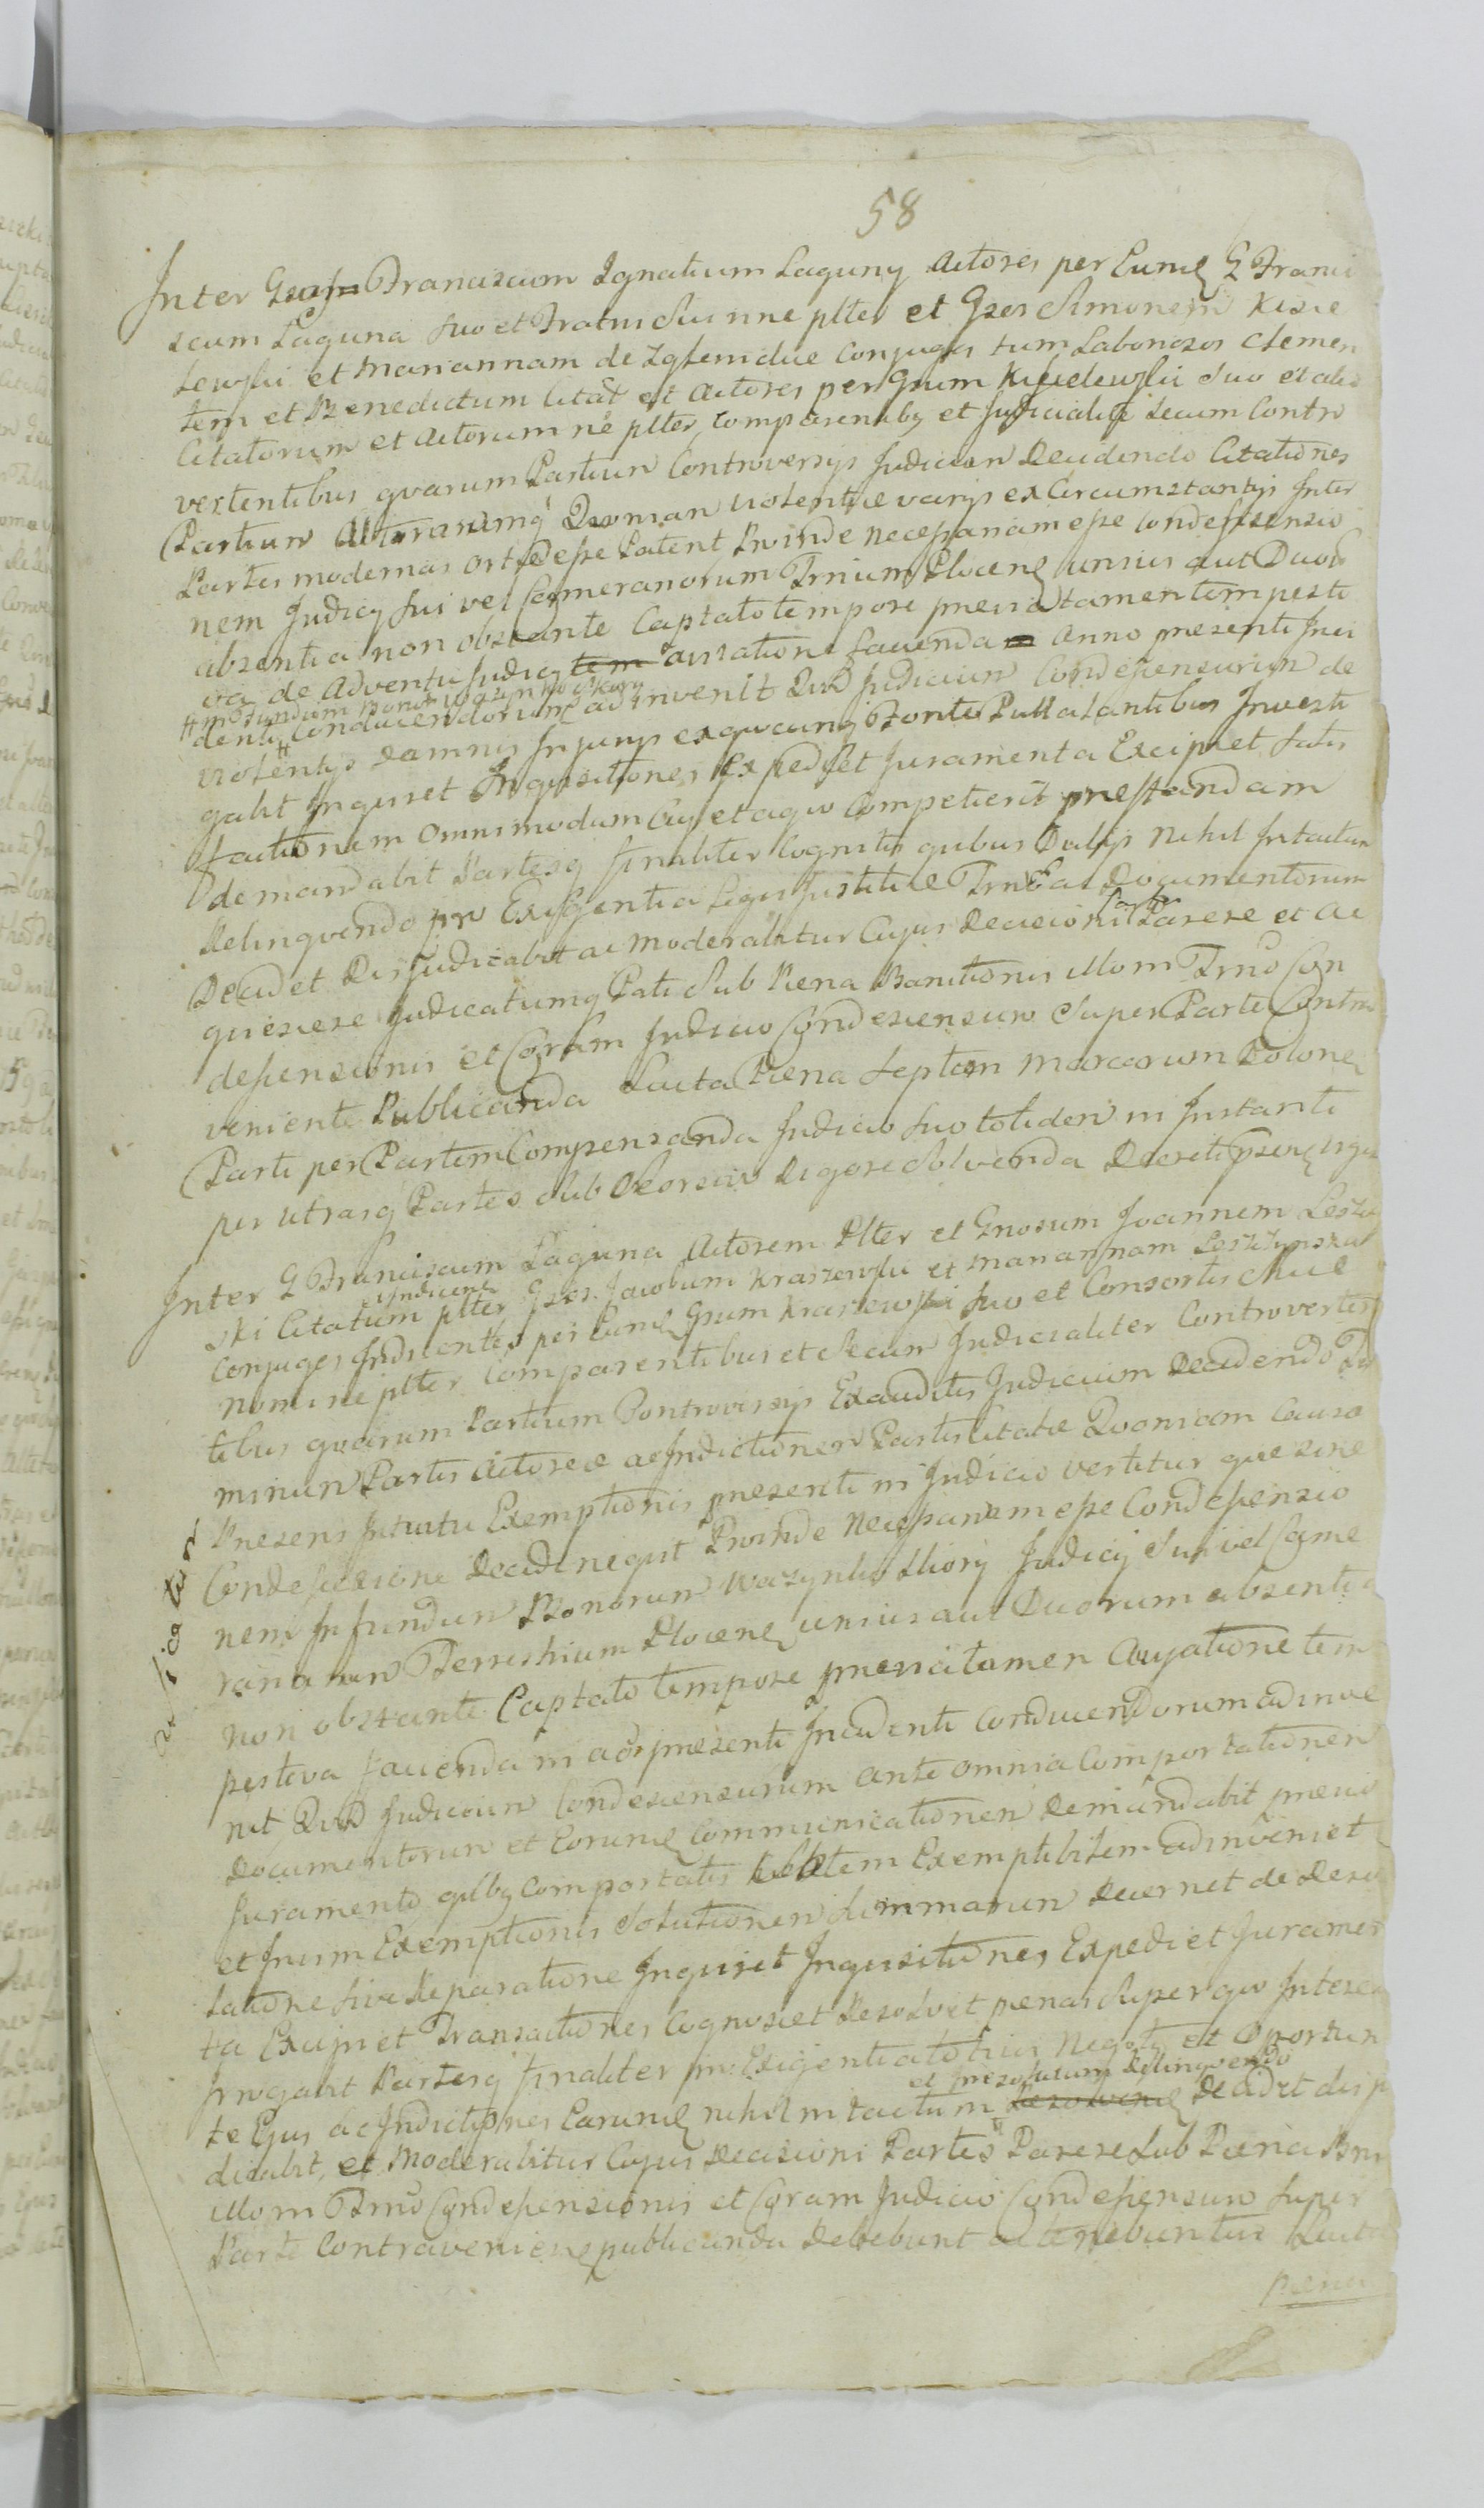 58
Inter Franciscum Ignatium Laguny Actores per Eund G Franci
scum Laguna suo et Fratris sui nne plter et Gsos Simonem Kisie
lewski et Mariannam de Zglenidue Conjuges tum Laboriosos Clemen
tem et Benedictum citat et Actores per Gsum Kisielewski suo et alio
Citatorum et Actorum ne plter comparentibq et Judicialit secum Contro
vertentibus quarum Partium Controversys Judicium Decidendo Citationes
Partium Quoniam violentiæ varys ex Circumstantys Inter
Partes modernas ortæ esse Patent Proinde necessariam esse Condescensio
nem Judicy sui vel Cameranorum Trrium Plocen unius aut Duor
absentia non obstante Captato tempore previa tamen tempesti
va de Adventu Judicy avisatione facienda Anno presenti Inci
# in fundum Bonor
denti Conducendorum adinvenit Qvod Judicium Condescensurium de
violentys # damnis Injurys ex qvocunq Fonte Pullulantibus Investi
gabit Inquiret Inquisitiones Expediet Juramenta Excipiet satis
factionem omnimodam Cuj et a qvo Competierit prestandam
demandabit Partesq finaliter Cognitis quibus Dubys nihil Intactum
Relinquendo pro Exigentia Legis Justitiæ Documentorum
Decidet Disjudicabit ac Moderabitur Cujus Decisioni Partes Parere et ac
quiescere Judicatumq Pati sub Pæna Banitionis illom Trno Con
descensionis et Coram Judicio Condescensuro super Parte Contra
veniente Publicanda Luita Pæna septem Marcarum Polonel
Parti per Partem Compensanda Judicio suo totidem in Instanti
per utrasq Partes sub deorsivo Rigore solvenda Decreti psent vigore
Inter G Franciscum Laguna Actorem plter et Gnosum Joannem Leszczy
et Indicent
ski Citatum plter Gsos Jacobum Kraszewski et Mariannam Leszczynska
Conjuges Indicentes per Eund Gsum Kraszewski suo et Consortis suæ
nomine plter comparentibus et secum Judicialiter Controverten
tibus quarum Partium Controversys Exauditis Judicium Decidendo Ter
minum Partis Actoreæ ac Indictionem Partis Citatæ Quoniam Causa
Presens Intuitu Exemptionis presenti in Judicio vertitur quæ sine
Condescensione Decidi nequit Proinde Necessariam esse Condescensio
nem In fundum Bonorum Judicy sui vel Came
rariorum Terrestrium Plocen unius aut Duorum absentia
non obstante Captato tempore previa tamen avisatione tem
pestiva facienda in presenti Incidenti Conducendorum adinve
nit Qvod Judicium Condescensurium ante omnia Comportationem
Documentorum et Eorund Communicationem Demandabit previo
Juramento qibq comportatis Exemptibilem adinveniet
et Inum Exemptionis solutionem summarum Decernet de Deso
latione sive Reparatione Inquiret Inquisitiones Expediet Juramen
ta Excipiet Transactiones Cognoscet Resolvet penas super qvo Interes
Irrogabit Partesq finaliter pro Exigentia totius Negoty et Oportun
et irresolutum Relinquendo
te Ejus ac Indictiones Earund nihil intactum Decidet disju
dicabit, et Moderabitur Cujus Decisioni Partes Parere sub Pæna Bni
illom Trno Condescensionis et Coram Judicio Condescensuro super
Parte Contravenien publicanda Debebunt ac tenebuntur Luita
pæna